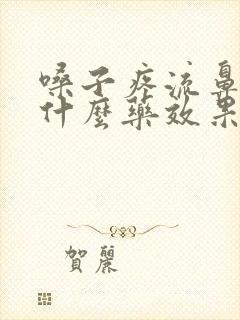 嗓子疼流鼻
什麼藥效果
賀麗